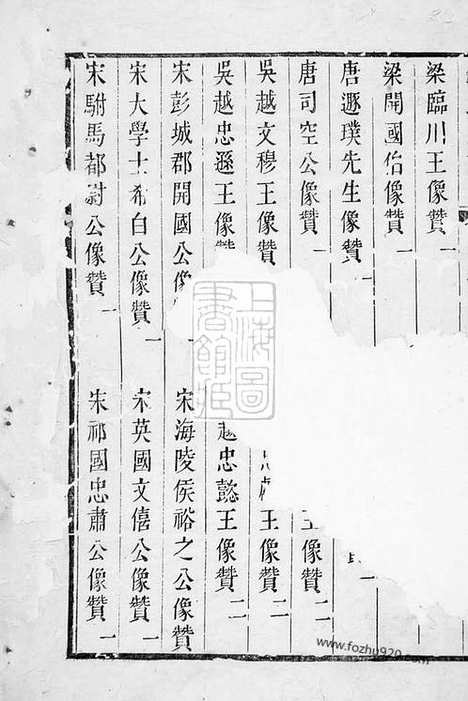 梁臨川王像贊一
梁開國侯像贊一
唐遯璞先生像贊一
唐司空公像贊一 王像贊二
吳越文穆王像贊 王像贊二
吳越忠遜王像贊 越忠懿王像贊二
宋彭城郡開國公像 一 宋海陵侯裕之公像贊
宋大學士希白公像贊一 宋英國文僖公像贊一
宋駙馬都尉公像贊一 宋祁國忠肅公像贊一
上海圖書館藏
www.fozhu920.com